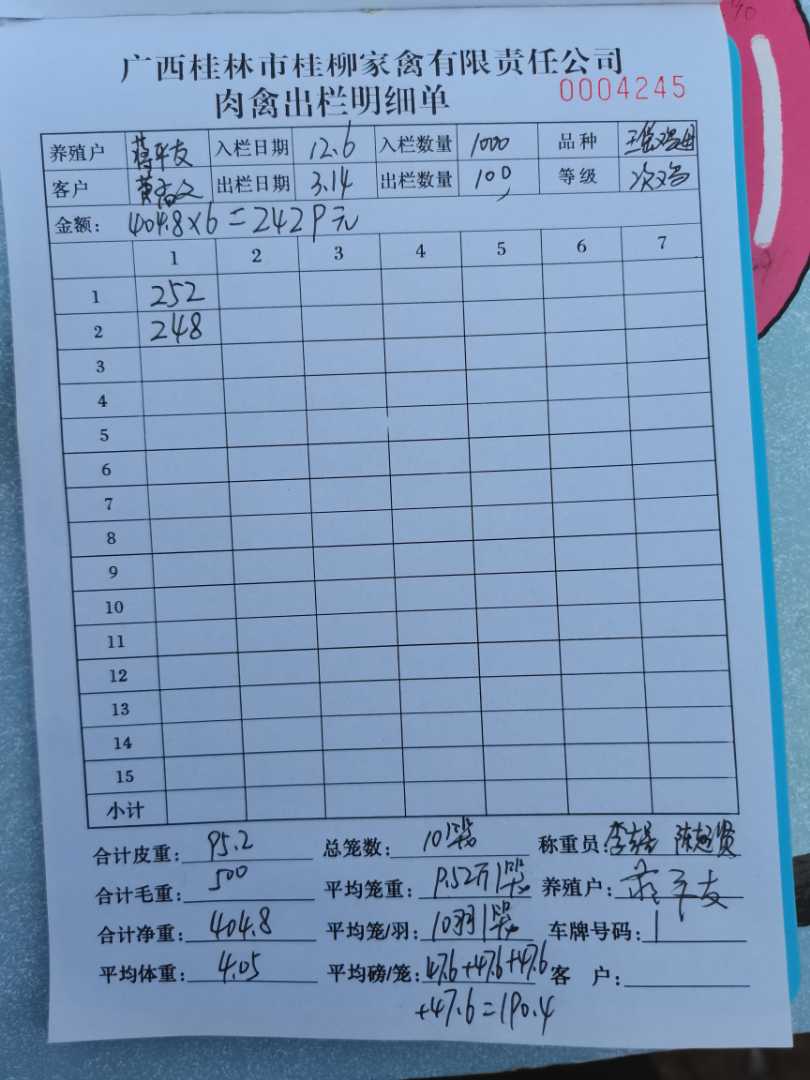 广西桂林市桂柳家禽有限责任公司
肉禽出栏明细单 0004245
养殖户 蒋平友 入栏日期 12.6 入栏数量 1000 品种
客户 出栏日期 3.14 出栏数量 100 等级 次鸡
金额: 404.8×6=2429元
1 2 3 4 5 6 7
1 252
2 248
3
4
5
6
7
8
9
10
11
12
13
14
15
小计
合计皮重: 95.2 总笼数: 10 称重员: 陈超贤
合计毛重: 500 平均笼重: 9.52 养殖户: 蒋平友
合计净重: 404.8 平均笼/羽: 10羽 车牌号码:
平均体重: 4.05 平均磅/笼: 47.6+47.6+47.6 客 户:
+47.6=190.4